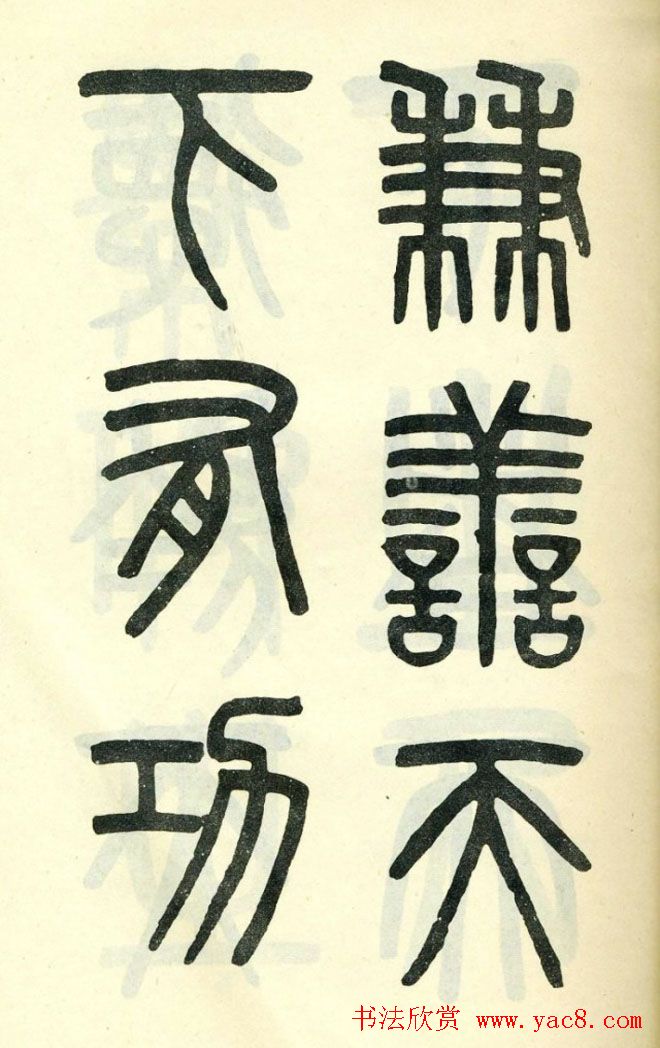 兼善天
下有功
书法欣赏 www.yac8.com